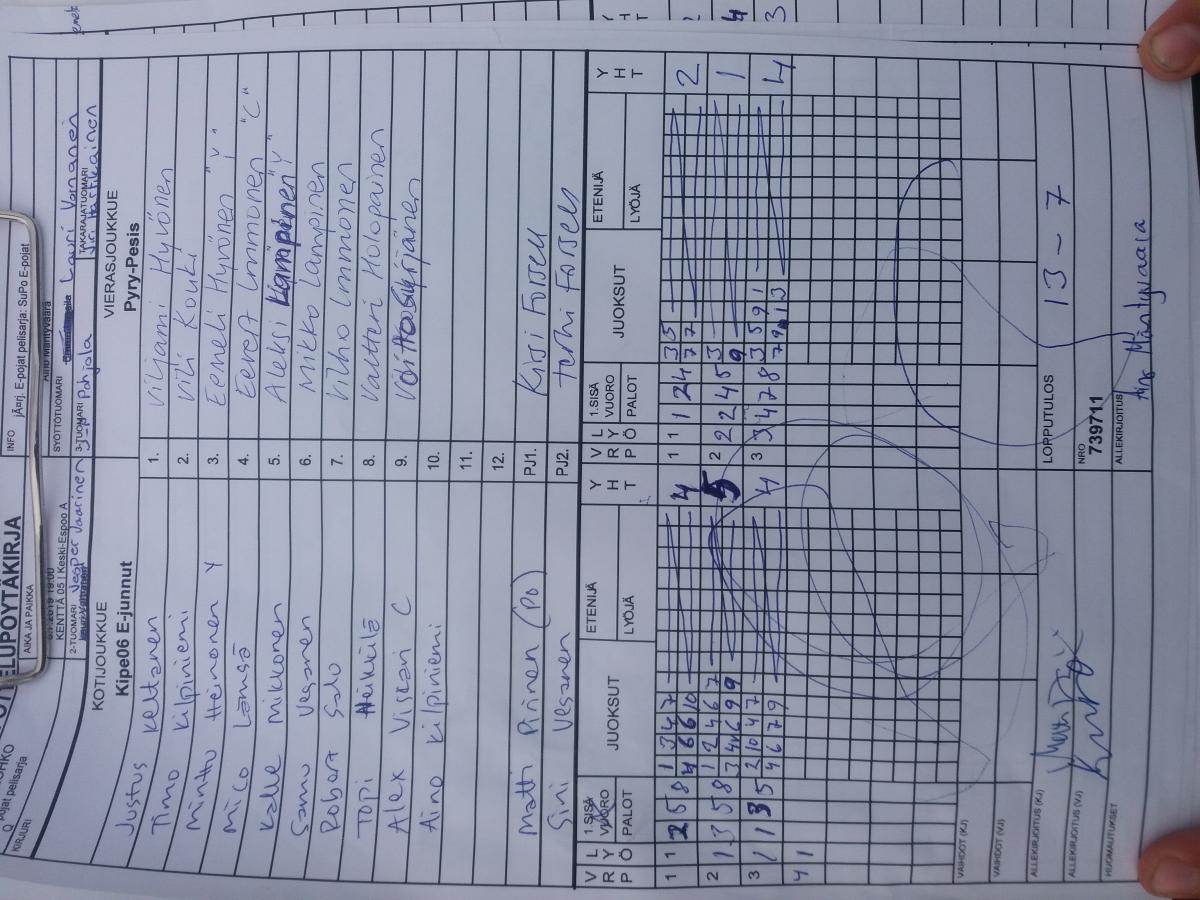 OTTELUPÖYTÄKIRJA
INFO
AIKA JA PAIKKA
19:00
KENTTÄ 05 | Keski-Espoo A
pojat pelisarja
KIRJURI
2-TUOMARI Jesper Vaarinen
3-TUOMARI J-P Pohjala
SYÖTTÖTUOMARI
Lauri Vornanen
TAKARAJATUOMARI
E-pojat pelisarja: SuPo E-pojat
KOTIJOUKKUE
Kipe06 E-junnut
VIERASJOUKKUE
Pyry-Pesis
Justus Keltanen 1. Viljami Hyvönen
Timo Kilpiniemi 2. Vili Kouki
Minttu Heinonen Y 3. Eemeli Hyvönen "V"
Mico Lämsä 4. Eevert Immonen "C"
Kalle Mikkonen 5. Aleksi
Samu Vesanen 6. Mikko Lampinen
Robert Salo 7. Viho Immonen
Topi Heikkilä 8. Valtteri Holopainen
Alex Viscari C 9.
Aino Kilpiniemi 10.
11.
12.
Matti Pirinen (PO) PJ1. Kirsi Forsell
Sini Vesanen PJ2. Terhi Forsell
VRP LYÖ 1.SISÄ VUORO PALOT JUOKSUT ETENIJÄ LYÖJÄ YHT
VRP LYÖ 1.SISÄ VUORO PALOT JUOKSUT ETENIJÄ LYÖJÄ YHT
1 1 2 5 8 1 3 4 7 4 1 1 1 2 4 3 5 2
4 6 6 10 7 7
2 1 3 5 8 1 2 4 6 7 5 2 2 2 4 5 3 1
3 4 6 9 9 9
3 1 1 3 5 2 10 4 7 4 3 3 4 7 8 3 5 9 1 4
4 6 7 9
4 1
VAIHDOT (KJ)
VAIHDOT (VJ)
ALLEKIRJOITUS (KJ)
ALLEKIRJOITUS (VJ)
HUOMAUTUKSET
LOPPUTULOS 13 - 7
NRO
739711
ALLEKIRJOITUS Aino Mäntyvaara